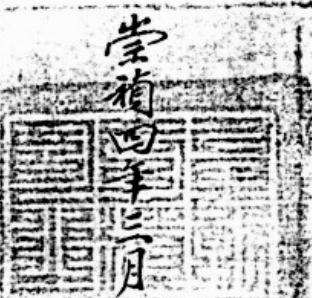 崇禎四年三月